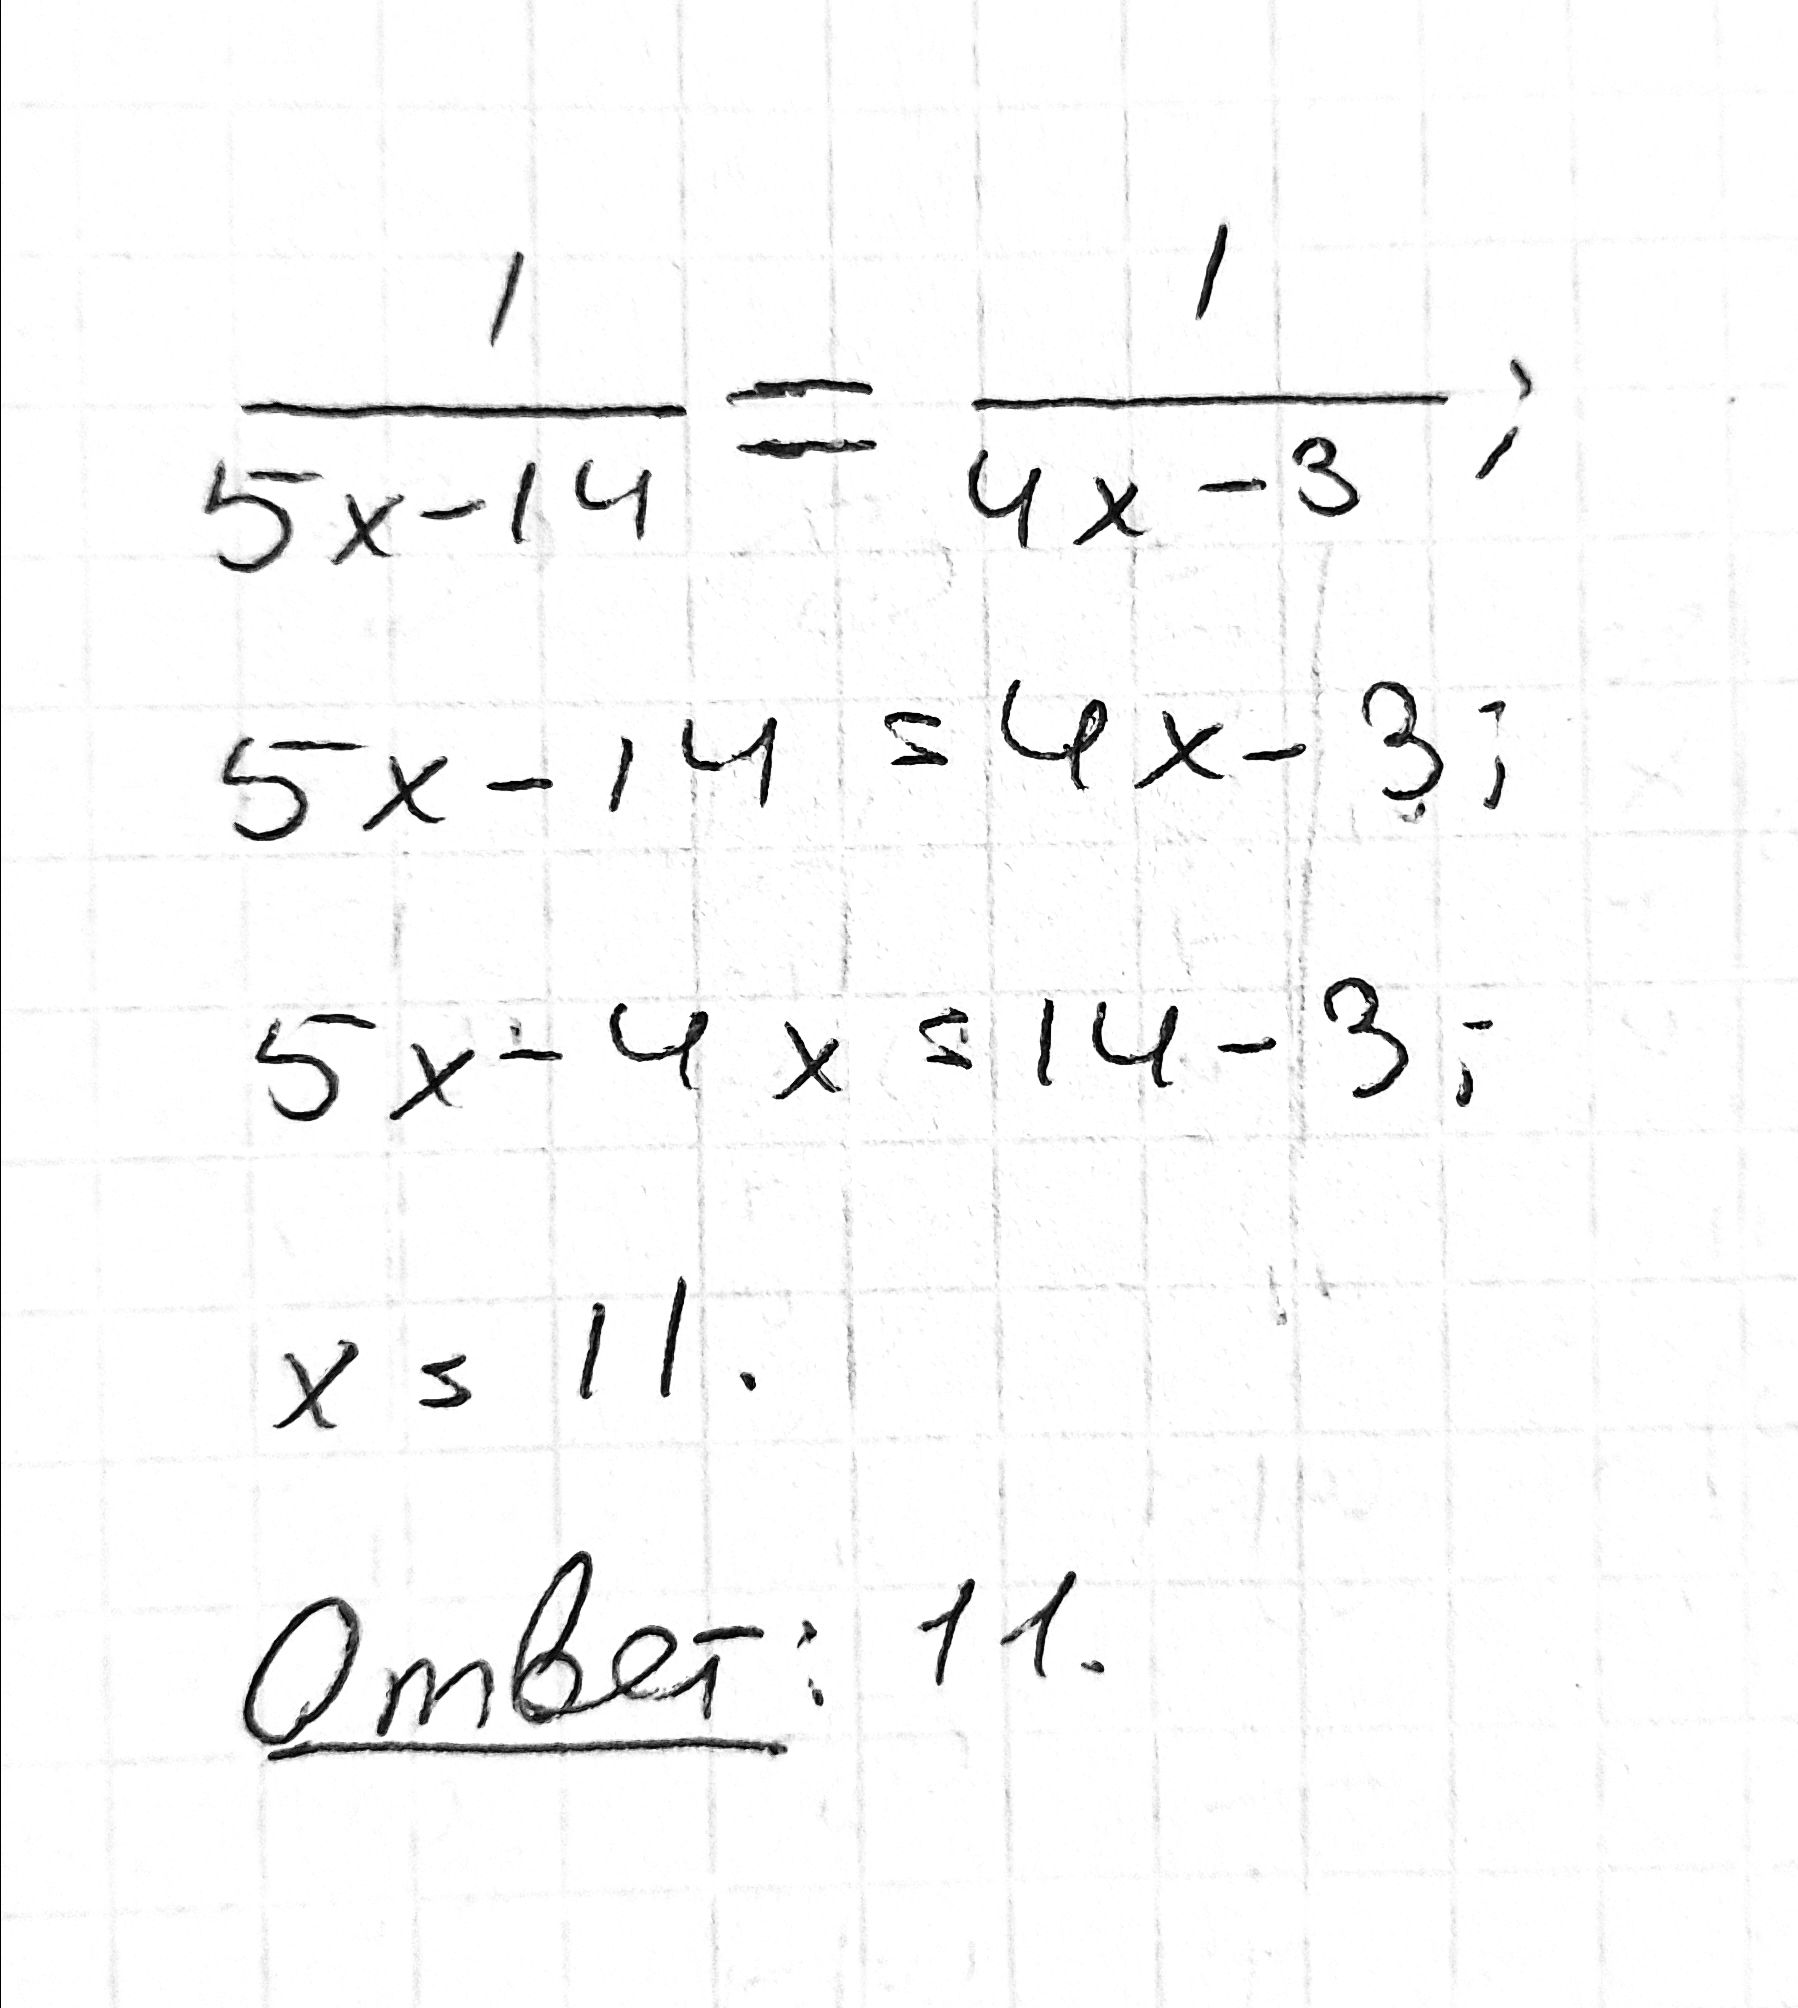 1/(5x-14) = 1/(4x-3);
5x-14 = 4x-3;
5x-4x = 14-3;
x = 11.
Ответ: 11.